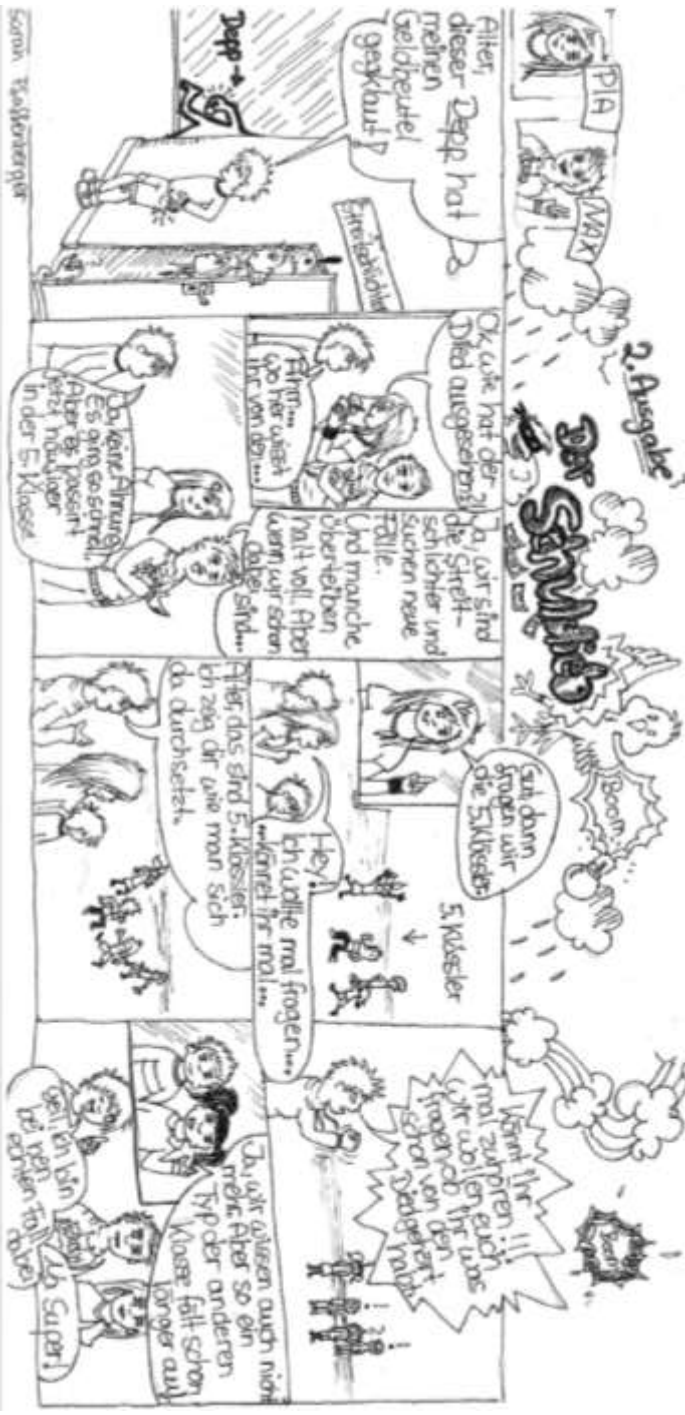 PIA
MAX
2. Ausgabe
Der
Boom
Boom
Alter,
dieser Depp hat
meinen
Geldbeutel
geklaut!
Depp →
Streitschlichter
Ok, wie hat der
Dieb ausgesehen?
Ähm...
wo her wisst
ihr von den...
Ja, wir sind
die Streit-
schlichter und
suchen neue
Fälle.
Und manche
übertreiben
halt voll. Aber
wenn wir schon
dabei sind...
Ja, keine Ahnung.
Es ging so schnell.
Aber es passirt
jetzt häufiger
in der 5. Klasse
Gut dann
fragen wir
die 5.Klässler.
5. Klässler
↓
Hey!
Ich wollte mal fragen...
...könnet ihr mal...
Alter, das sind 5. Klässler.
Ich zeig dir wie man sich
da durchsetzt.
Könnt ihr
mal zuhören!!!
wir wollen euch
fragen ob ihr was
schon von den
Dieb gehört
habt!
Ja, wir wissen auch nicht
mehr. Aber so ein
Typ der anderen
Klasse fällt schon
länger auf.
geil, ich bin
bei nen
echten Fall
dabei
Ja Super!